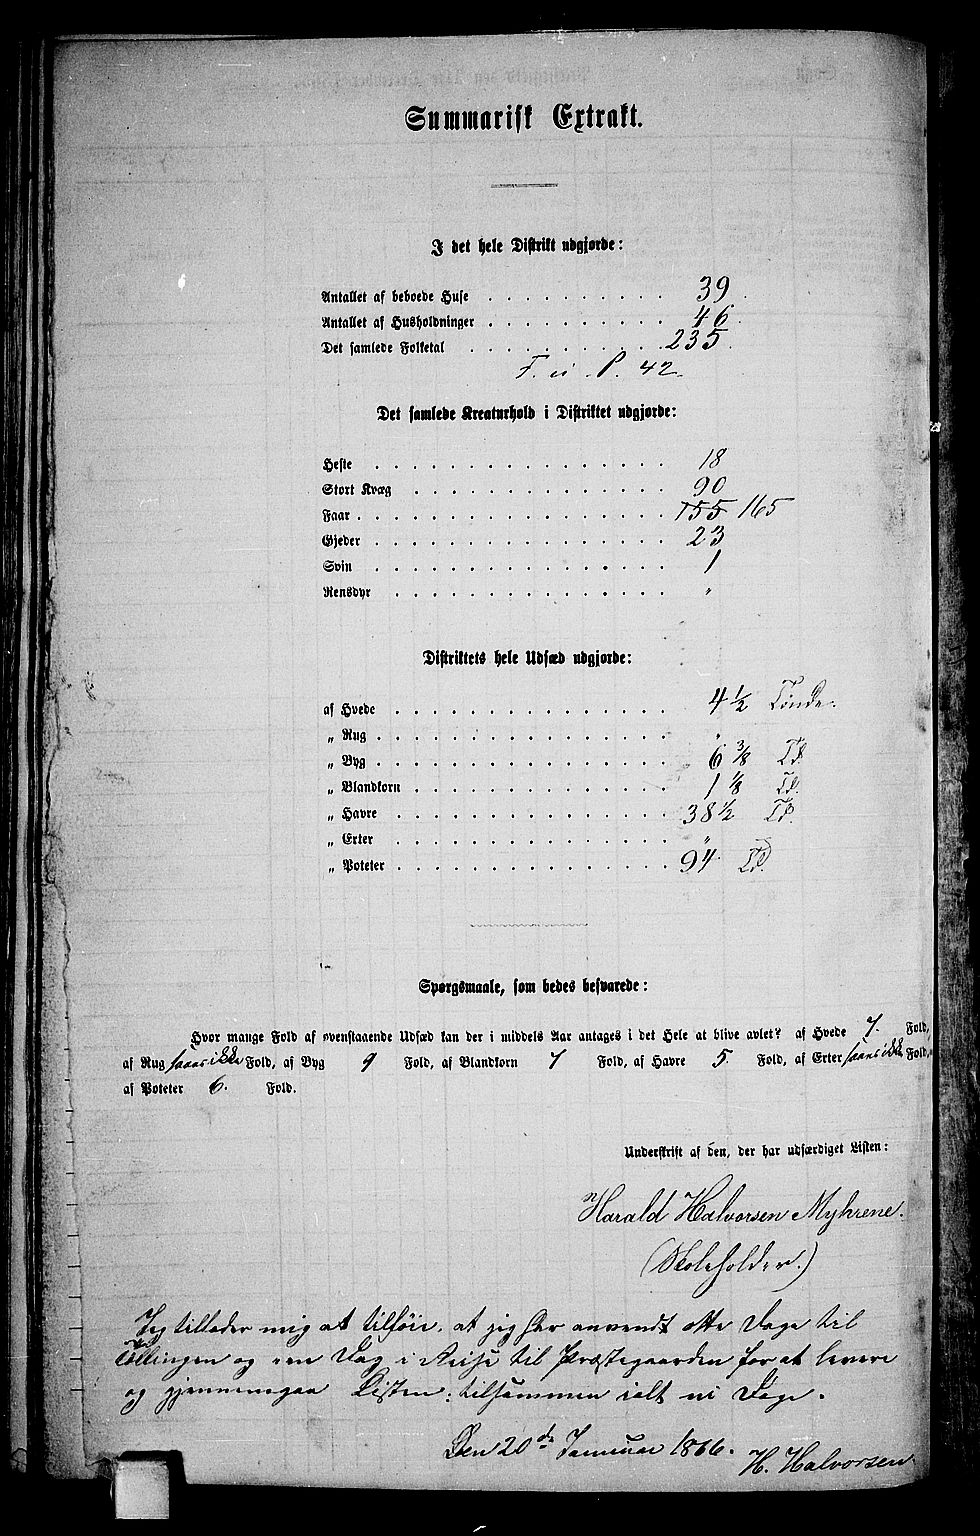 Summarisk Extrakt.
I det hele Distrikt udgjorde:
Antallet af beboede Huse . . . . . . . . . . 39
Antallet af Husholdninger . . . . . . . . . . 46.
Det samlede Folketal . . . . . . . . . . . 235.
P. 42.
Det samlede Kreaturhold i Distriktet udgjorde:
Heste . . . . . . . . . . . . . . . . 18
Stort Kvæg . . . . . . . . . . . . . . 90
Faar . . . . . . . . . . . . . . . . . 155 165
Gjeder . . . . . . . . . . . . . . . . 23
Svin . . . . . . . . . . . . . . . . 1
Rensdyr . . . . . . . . . . . . . . . "
Distriktets hele Udsæd udgjorde:
af Hvede . . . . . . . . . . . . . . . 4 ½ Tønde.
„ Rug . . . . . . . . . . . . . . . . "
„ Byg . . . . . . . . . . . . . . . . 6 3/8 Td.
„ Blandkorn . . . . . . . . . . . . . . 1 1/8 Td.
„ Havre . . . . . . . . . . . . . . . 38 ½ Td.
„ Erter . . . . . . . . . . . . . . . "
„ Poteter . . . . . . . . . . . . . . . 94. Td.
Spørgsmaale, som bedes besvarede:
Hvor mange Fold af ovenstaaende Udsæd kan der i middels Aar antages i det Hele at blive avlet? af Hvede 7. Fold,
af Rug saaes ikke Fold, af Byg 9 Fold, af Blandkorn 7 Fold, af Havre 5 Fold, af Erter saaes ikke Fold,
af Poteter 6. Fold.
Underskrift af den, der har udfærdiget Listen:
Harald Halvorsen Myhrene.
(Skoleholder.)
Jeg tillader mig at tilføie, at jeg har anvendt otte Dage til
Tællingen og een Dag i Reise til Præstegaarden for at levere
og gjennemgaa Listen, tilsammen ialt ni Dage.
Den 20de Januar 1866.
H. Halvorsen